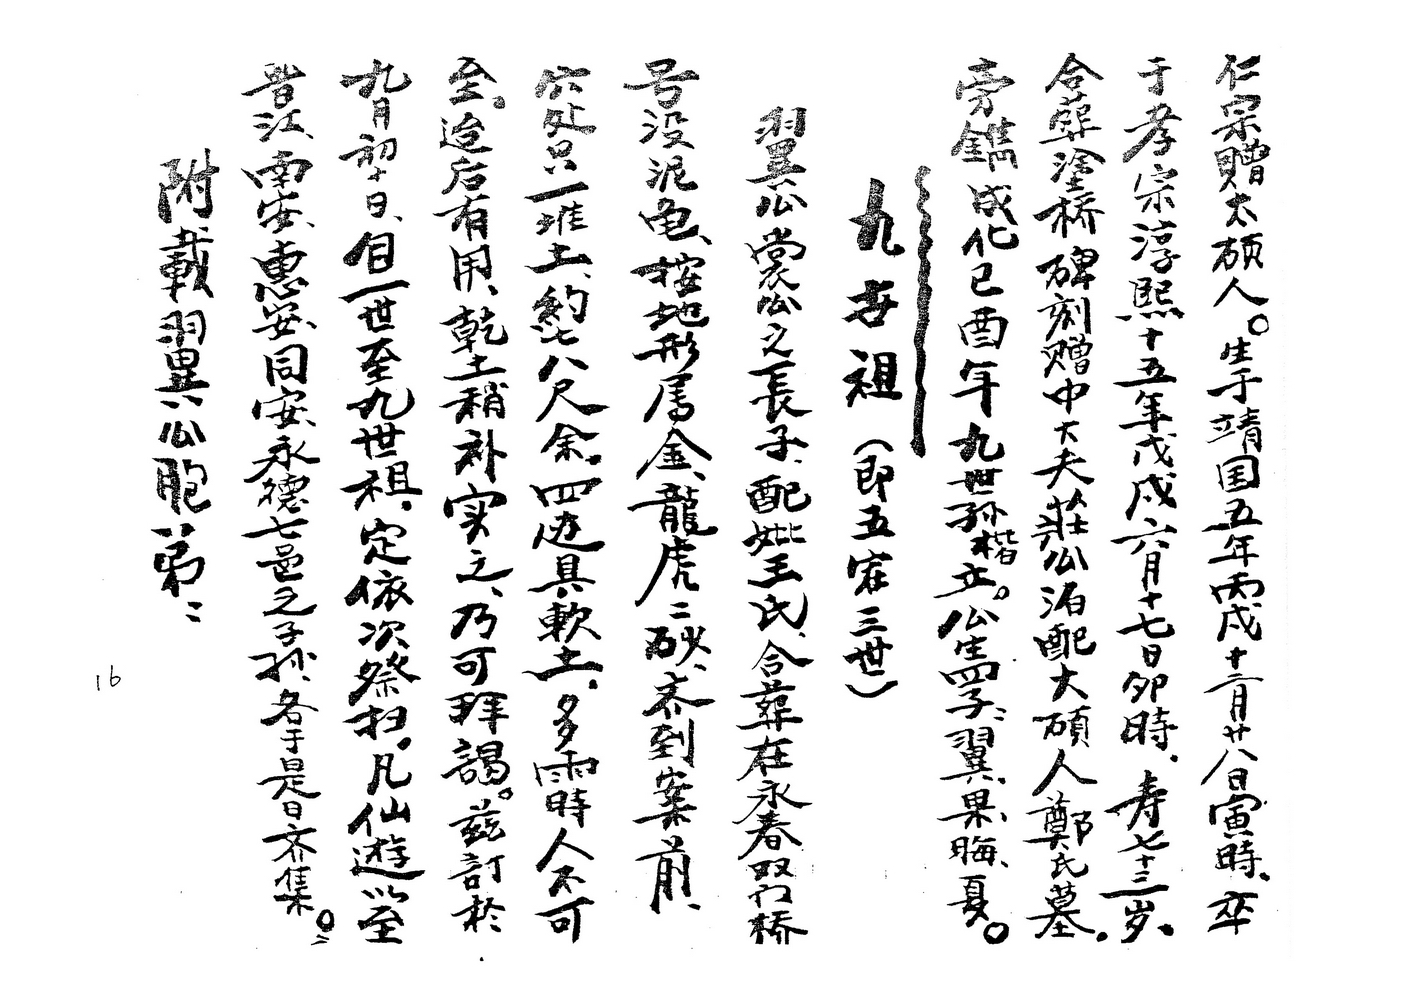 仁宗赠太硕人。生于靖国五年丙戌十二月廿八日寅時.卒
于孝宗淳熙十五年戊戍六月十七日卯時.寿七十三岁.
合葬塗桥碑刻赠中大夫莊公洎配大碩人鄭氏墓.
旁鐫成化已酉年九世孙楷立。公生四子:翼、果、晦、夏。
九世祖(即五宅三世)
翼公裳公之長子.配妣王氏、合葬在永春双门桥
号没泥龟、按地形属金、龍虎二砂、齐到案前、
穴处只一堆土、約七八尺余.四边具軟土.多雨時人不可
至.迨后有用、乾土稍补实之、乃可拜謁。兹訂於
九月初十日、自一世至九世祖.定依次祭扫.凡仙遊以至
晋江、南安、惠安、同安、永德七邑之子孙、各于是日齐集。:
附載翼公胞弟::
16